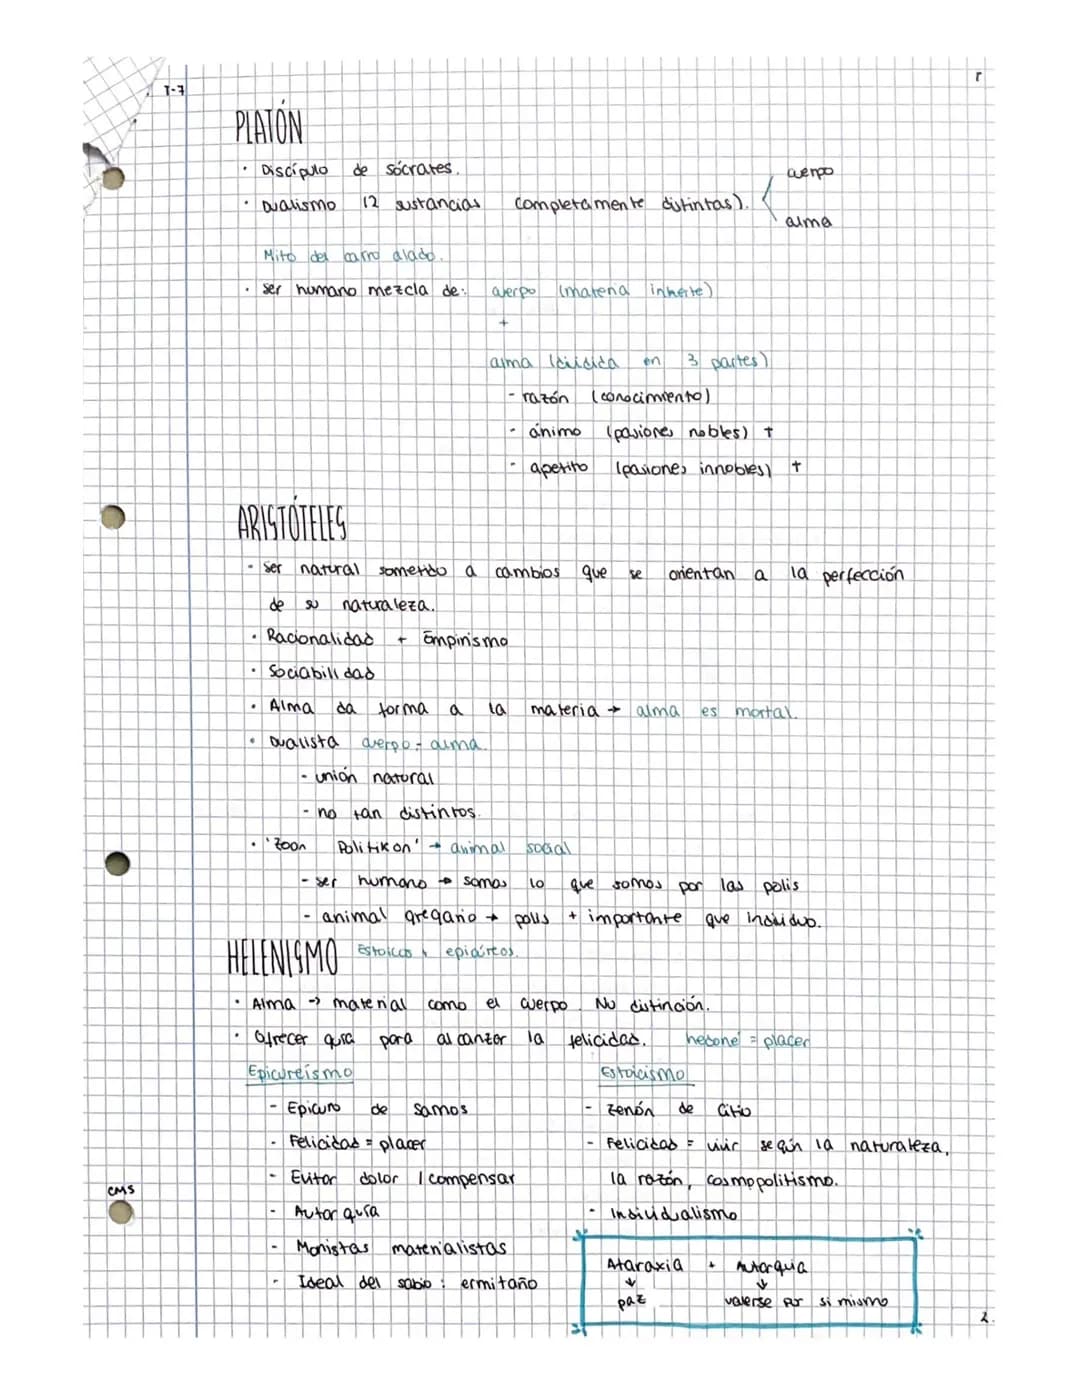 T-7
PLATÓN
· Discípulo de sócrates.
cuerpo
· Dualismo (2 sustancias completamente distintas).
alma
Mito del carro alado.
· ser humano mezcla de: cuerpo (materia inherte)
+
alma (dividida en 3 partes)
- razón (conocimiento)
- ánimo (pasiones nobles) †
- apetito (pasiones innobles) †
ARISTÓTELES
· Ser natural sometido a cambios que se orientan a la perfección
de su naturaleza.
· Racionalidad + Empirismo
· Sociabilidad
· Alma da forma a la materia → alma es mortal.
· Dualista cuerpo - alma.
- unión natural
- no tan distintos.
· 'Zoon Politikon' → animal social
- ser humano → somos lo que somos por las polis
- animal gregario → polis + importante que individuo.
HELENISMO Estoicos y epicúreos.
· Alma → material como el cuerpo. No distinción.
· Ofrecer guía para alcanzar la felicidad. hedoné = placer
Epicureísmo Estoicismo
- Epicuro de Samos - Zenón de Citio
- Felicidad = placer - Felicidad = vivir según la naturaleza,
- Evitar dolor / compensar la razón, cosmopolitismo.
CMS
- Autarquía - Individualismo
- Monistas materialistas
Ataraxia + Autarquía
- Ideal del sabio : ermitaño
paz valerse por si mismo
2.